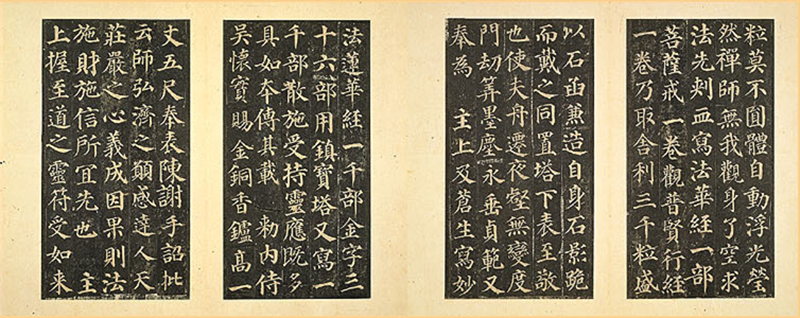 粒莫不圓體自動浮光瑩
然禪師無我觀身了空求
法先刾血寫法華經一部
菩薩戒一卷觀普賢行經
一卷乃取舍利三千粒盛
以石函兼造自身石影跪
而戴之同置塔下表至敬
也使夫舟遷夜壑無變度
門劫筭墨塵永垂貞範又
奉為 主上及蒼生寫妙
法蓮華經一千部金字三
十六部用鎮寶塔又寫一
千部散施受持靈應既多
具如本傳其載 勑內侍
吳懷實賜金銅香鑪高一
丈五尺奉表陳謝手詔批
云師弘濟之願感達人天
莊嚴之心義成因果則法
施財施信所宜先也 主
上握至道之靈符受如來